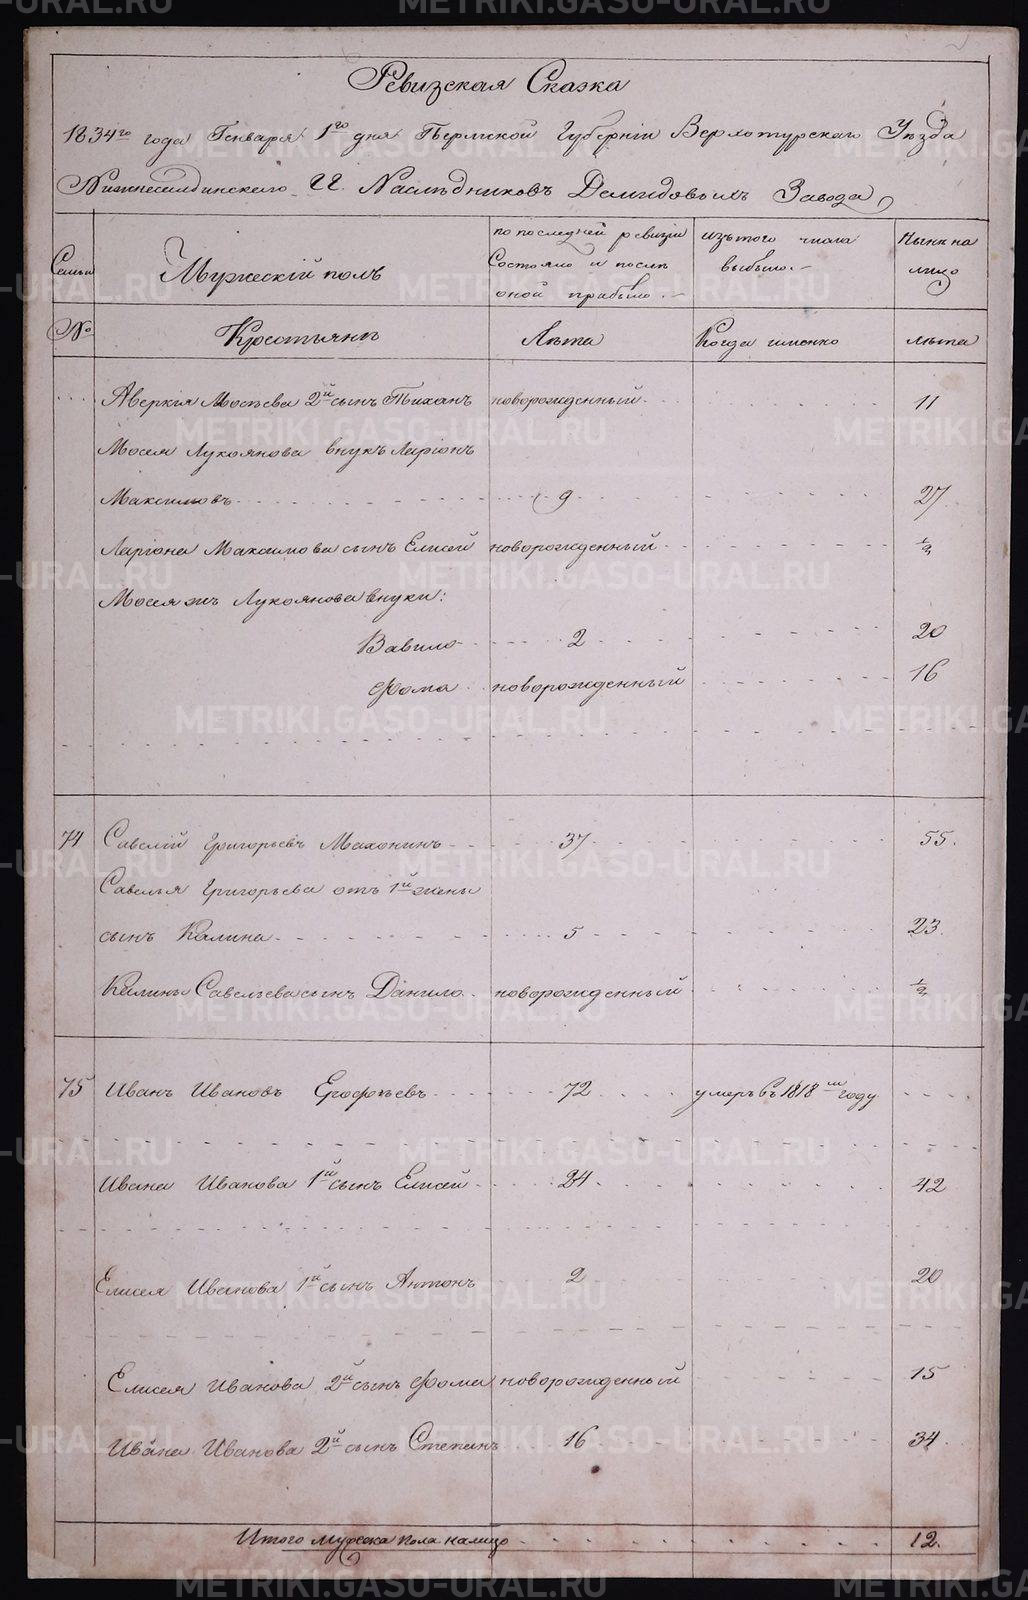 Ревизская Сказка
1834го года Генваря 1го дня Пермской Губернiи Верхотурскаго Уѣзда
Нижнесалдинскаго Г.Г. Наслѣдниковъ Демидовыхъ Завода
Семьи
Мужескiй полъ
по последней ревизiи
Состояло и послѣ
оной прибыло
изъ того числа
выбыло
Нынѣ на
лицо
№
Крестьянъ
Лѣта
Когда именно
лѣта
Аверкiя Мосѣева 2й сынъ Тихонъ новорожденный 11
Мосея Лукоянова внукъ Ларiонъ
Максимовъ 9 27
Ларiона Максимова сынъ Елисей новорожденный ½
Мосея жъ Лукоянова внуки:
Вавило 2 20
Фома новорожденный 16
74 Савелiй Григорьевъ Махонинъ 37 55.
Савелья Григорьева отъ 1й жены
сынъ Калина 5 23.
Калины Савельева сынъ Данило новорожденный ½
75 Иванъ Ивановъ Ерофѣевъ 72 умеръ въ 1818м году
Ивана Иванова 1й сынъ Елисей 24 42
Елисея Иванова 1й сынъ Антонъ 2 20
Елисея Иванова 2й сынъ Фома новорожденный 15
Ивана Иванова 2й сынъ Степанъ 16 34
Итого мужеска пола налицо 12.
METRIKI.GASO-URAL.RU